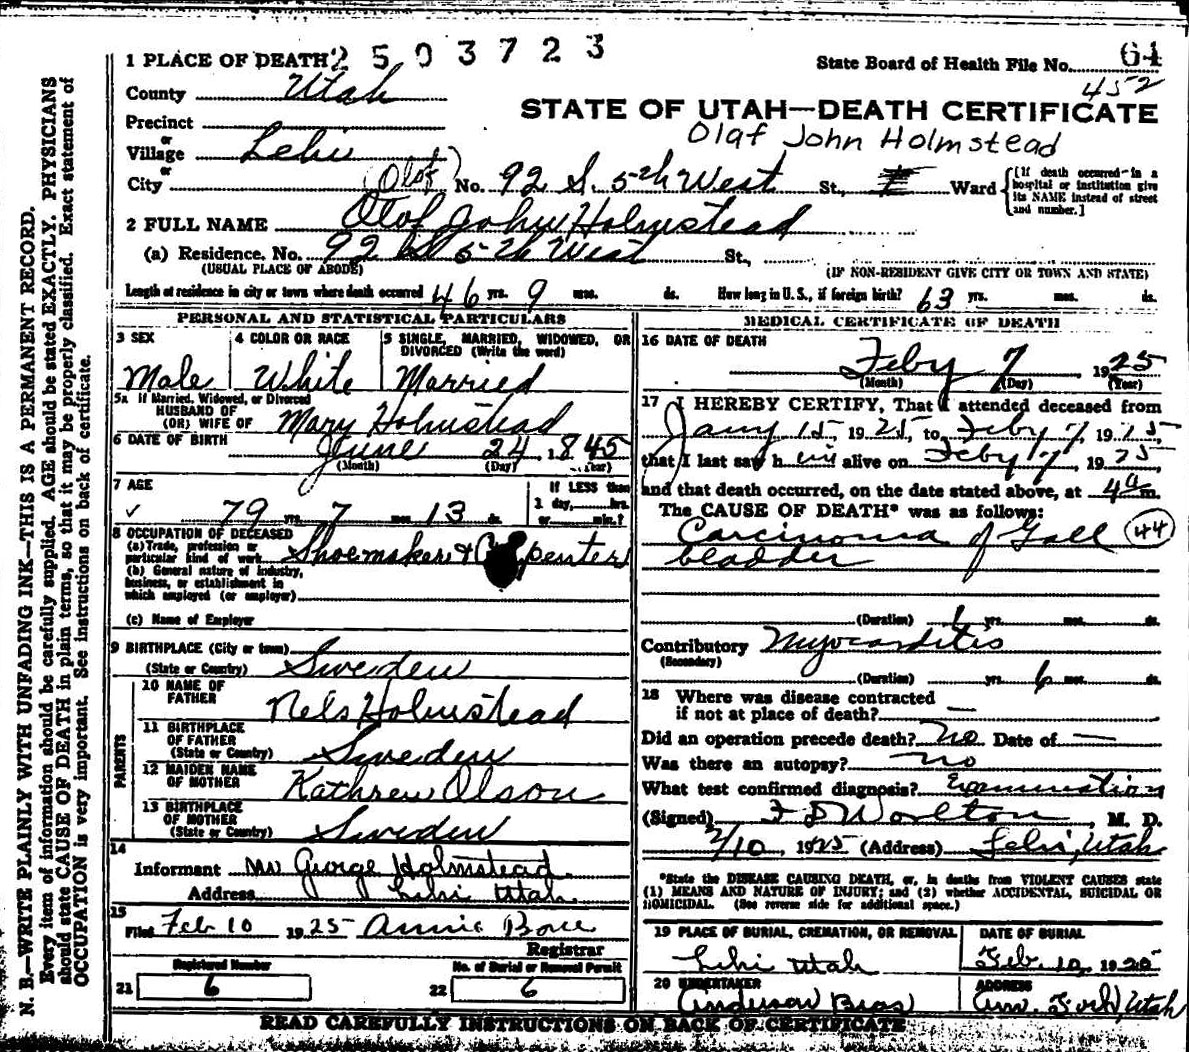 N. B.—WRITE PLAINLY WITH UNFADING INK—THIS IS A PERMANENT RECORD.
Every item of information should be carefully supplied. AGE should be stated EXACTLY. PHYSICIANS
should state CAUSE OF DEATH in plain terms, so that it may be properly classified. Exact statement of
OCCUPATION is very important. See instructions on back of certificate.
2503723
1 PLACE OF DEATH
State Board of Health File No. 64
452
County Utah
STATE OF UTAH—DEATH CERTIFICATE
Precinct
Olaf John Holmstead
or
Village Lehi
or
City (Olof) No. 92 S. 5th West St., Ward
[If death occurred in a
hospital or institution give
its NAME instead of street
and number.]
2 FULL NAME Olof John Holmstead
(a) Residence. No. 92 S 5th West St.,
(USUAL PLACE OF ABODE) (IF NON-RESIDENT GIVE CITY OR TOWN AND STATE)
Length of residence in city or town where death occurred 46 yrs. 9 mos. ds. How long in U. S., if foreign birth? 63 yrs. mos. ds.
PERSONAL AND STATISTICAL PARTICULARS
3 SEX 4 COLOR OR RACE 5 SINGLE, MARRIED, WIDOWED, OR
DIVORCED (Write the word)
Male White Married
5a If Married, Widowed, or Divorced
HUSBAND OF
(OR) WIFE OF Mary Holmstead
6 DATE OF BIRTH June 24 1845
(Month) (Day) (Year)
7 AGE If LESS than
1 day, hrs.
✓ 79 yrs. 7 mos. 13 ds. or min.?
8 OCCUPATION OF DECEASED
(a) Trade, profession or
particular kind of work Shoemaker & Carpenter
(b) General nature of industry,
business, or establishment in
which employed (or employer)
(c) Name of Employer
9 BIRTHPLACE (City or town)
(State or Country) Sweden
PARENTS
10 NAME OF
FATHER Nels Holmstead
11 BIRTHPLACE
OF FATHER
(State or Country) Sweden
12 MAIDEN NAME
OF MOTHER Kathren Olson
13 BIRTHPLACE
OF MOTHER
(State or Country) Sweden
14
Informant George Holmstead
Address Lehi Utah
15
Filed Feb 10 1925 Annie
Registrar
Registered Number No. of Burial or Removal Permit
21 6 22 6
MEDICAL CERTIFICATE OF DEATH
16 DATE OF DEATH
Feby 7 1925
(Month) (Day) (Year)
17 I HEREBY CERTIFY, That I attended deceased from
Jany 15, 1925, to Feby 7, 1925,
that I last saw him alive on Feby 7, 1925,
and that death occurred, on the date stated above, at 4 a m.
The CAUSE OF DEATH* was as follows:
Carcinoma of Gall (44)
bladder
(Duration) 1 yrs. mos. ds.
Contributory Myocarditis
(Secondary)
(Duration) yrs. 6 mos. ds.
18 Where was disease contracted
if not at place of death? —
Did an operation precede death? No Date of —
Was there an autopsy? no
What test confirmed diagnosis? Examination
(Signed) F D Worlton, M. D.
2/10, 1925 (Address) Lehi, Utah
*State the DISEASE CAUSING DEATH, or, in deaths from VIOLENT CAUSES state
(1) MEANS AND NATURE OF INJURY; and (2) whether ACCIDENTAL, SUICIDAL OR
HOMICIDAL. (See reverse side for additional space.)
19 PLACE OF BURIAL, CREMATION, OR REMOVAL DATE OF BURIAL
Lehi Utah Feb. 10, 1925
20 UNDERTAKER ADDRESS
Anderson Bros Am. Fork, Utah
READ CAREFULLY INSTRUCTIONS ON BACK OF CERTIFICATE